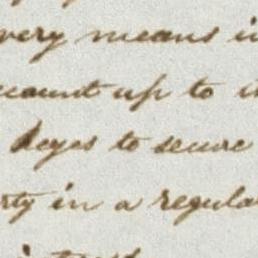 very means i
count up to i
Keyes to secure
rty in a regula